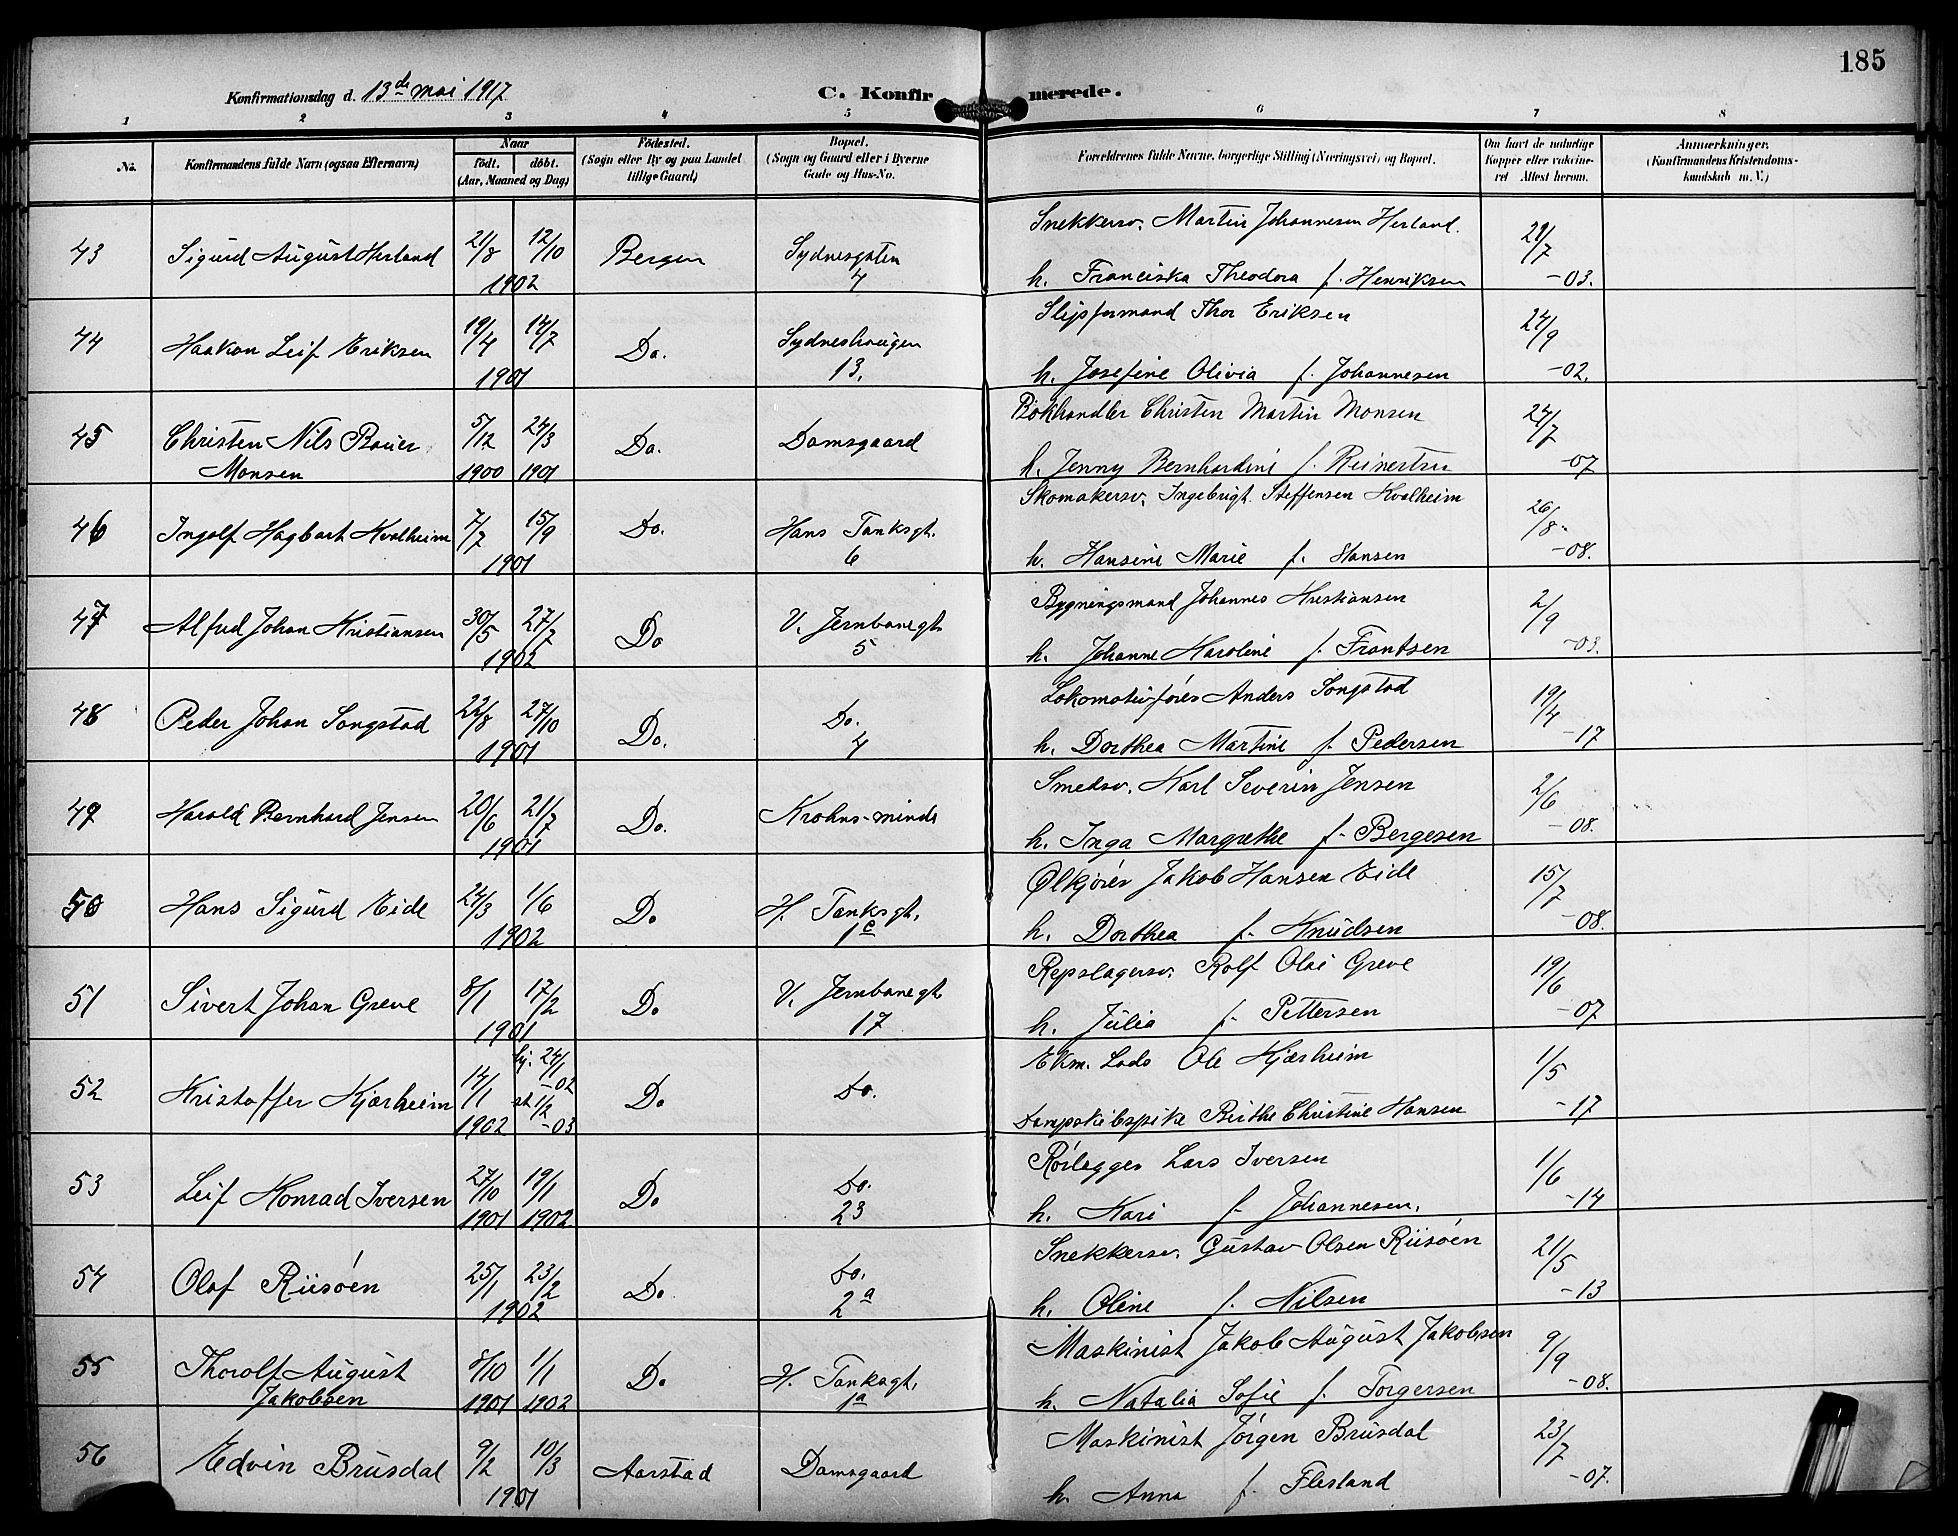 185
Konfirmationsdag d. 13de mai 1917
C. Konfirmerede.
1 2 3 4 5 6 7 8
No.
Konfirmandens fulde Navn (ogsaa Efternavn)
Naar
født. døbt.
(Aar, Maaned og Dag)
Fødested.
(Sogn eller By og paa Landet
tillige Gaard)
Bopæl.
(Sogn og Gaard eller i Byerne
Gade og Hus-No.
Forældrenes fulde Navne, borgerlige Stilling (Næringsvei) og Bopæl.
Om havt de naturlige
Kopper eller vaksine-
ret Attest herom.
Anmerkninger.
(Konfirmandens Kristendoms-
kundskab m. V.)
43 Sigurd August Herland 21/8 12/10 1902 Bergen Sydnesgaten 4
Snekkersv. Martin Johannesen Herland.
h. Franciska Theodora f. Henriksen 21/7 -03.
44 Haakon Leif Eriksen 19/4 14/7 1901 Do. Sydneshaugen 13.
Slipsformand Thor Eriksen
h. Josefine Olivia f. Johannesen 24/9 -02.
45 Christen Nils Bauer
Monsen 5/12 1900 24/3 1901 Do. Damsgaard
Bokhandler Christen Martin Monsen
h. Jenny Bernhardine f. Reinertsen 24/7 -07
46 Ingolf Hagbart Kvalheim 7/7 15/9 1901 Do. Hans Tanksgt. 6
Skomakersv. Ingebrigt Steffensen Kvalheim
h. Hansine Marie f. Hansen 26/8 -08.
47 Alfred Johan Kristiansen 30/5 27/7 1902 Do V. Jernbanegt. 5
Bygningsmand Johannes Kristiansen
h. Johanne Karoline f. Frantsen 2/9 -03.
48 Peder Johan Songstad 22/8 27/10 1901 Do. Do. 4
Lokomotivfører Anders Songstad
h. Dorthea Martine f. Pedersen 19/4 -17
49 Harald Bernhard Jensen 20/6 21/7 1901 Do. Krohns-minde
Smedsv. Karl Severin Jensen
h. Inga Margrethe f. Bergesen 2/6 -08.
50 Hans Sigurd Eide 24/3 1/6 1902 Do H. Tanksgt. 1c
Ølkjører Jakob Hansen Eide
h. Dorthea f. Knudsen 15/7 -08.
51 Sivert Johan Greve 8/1 17/2 1901 Do V. Jernbanegt. 17
Repslagersv. Rolf Olai Greve
h. Julia f. Pettersen 19/6 -07
52 Kristoffer Kjærheim 14/1 1902 hj. 24/1 -02 st. 1/2 -03 Do Do.
Ekm. Lods Ole Kjærheim
Dampskibspike Birthe Christine Hansen 1/5 -17
53 Leif Konrad Iversen 27/10 1901 19/1 1902 Do Do. 23
Rørlegger Lars Iversen
h. Kari f. Johannesen. 1/6 -14
54 Olaf Riisøen 25/1 23/2 1902 Do. Do. 2a
Snekkersv. Gustav Olsen Riisøen
h. Oline f. Nilsen 21/5 -13
55 Thorolf August
Jakobsen 8/10 1901 1/1 1902 Do H. Tanksgt. 1a
Maskinist Jakob August Jakobsen
h. Natalia Sofie f. Torgersen 9/9 -08.
56 Edvin Brusdal 9/2 10/3 1901 Aarstad Damsgaard
Maskinist Jørgen Brusdal
h. Anna f. Flesland 23/7 -07.